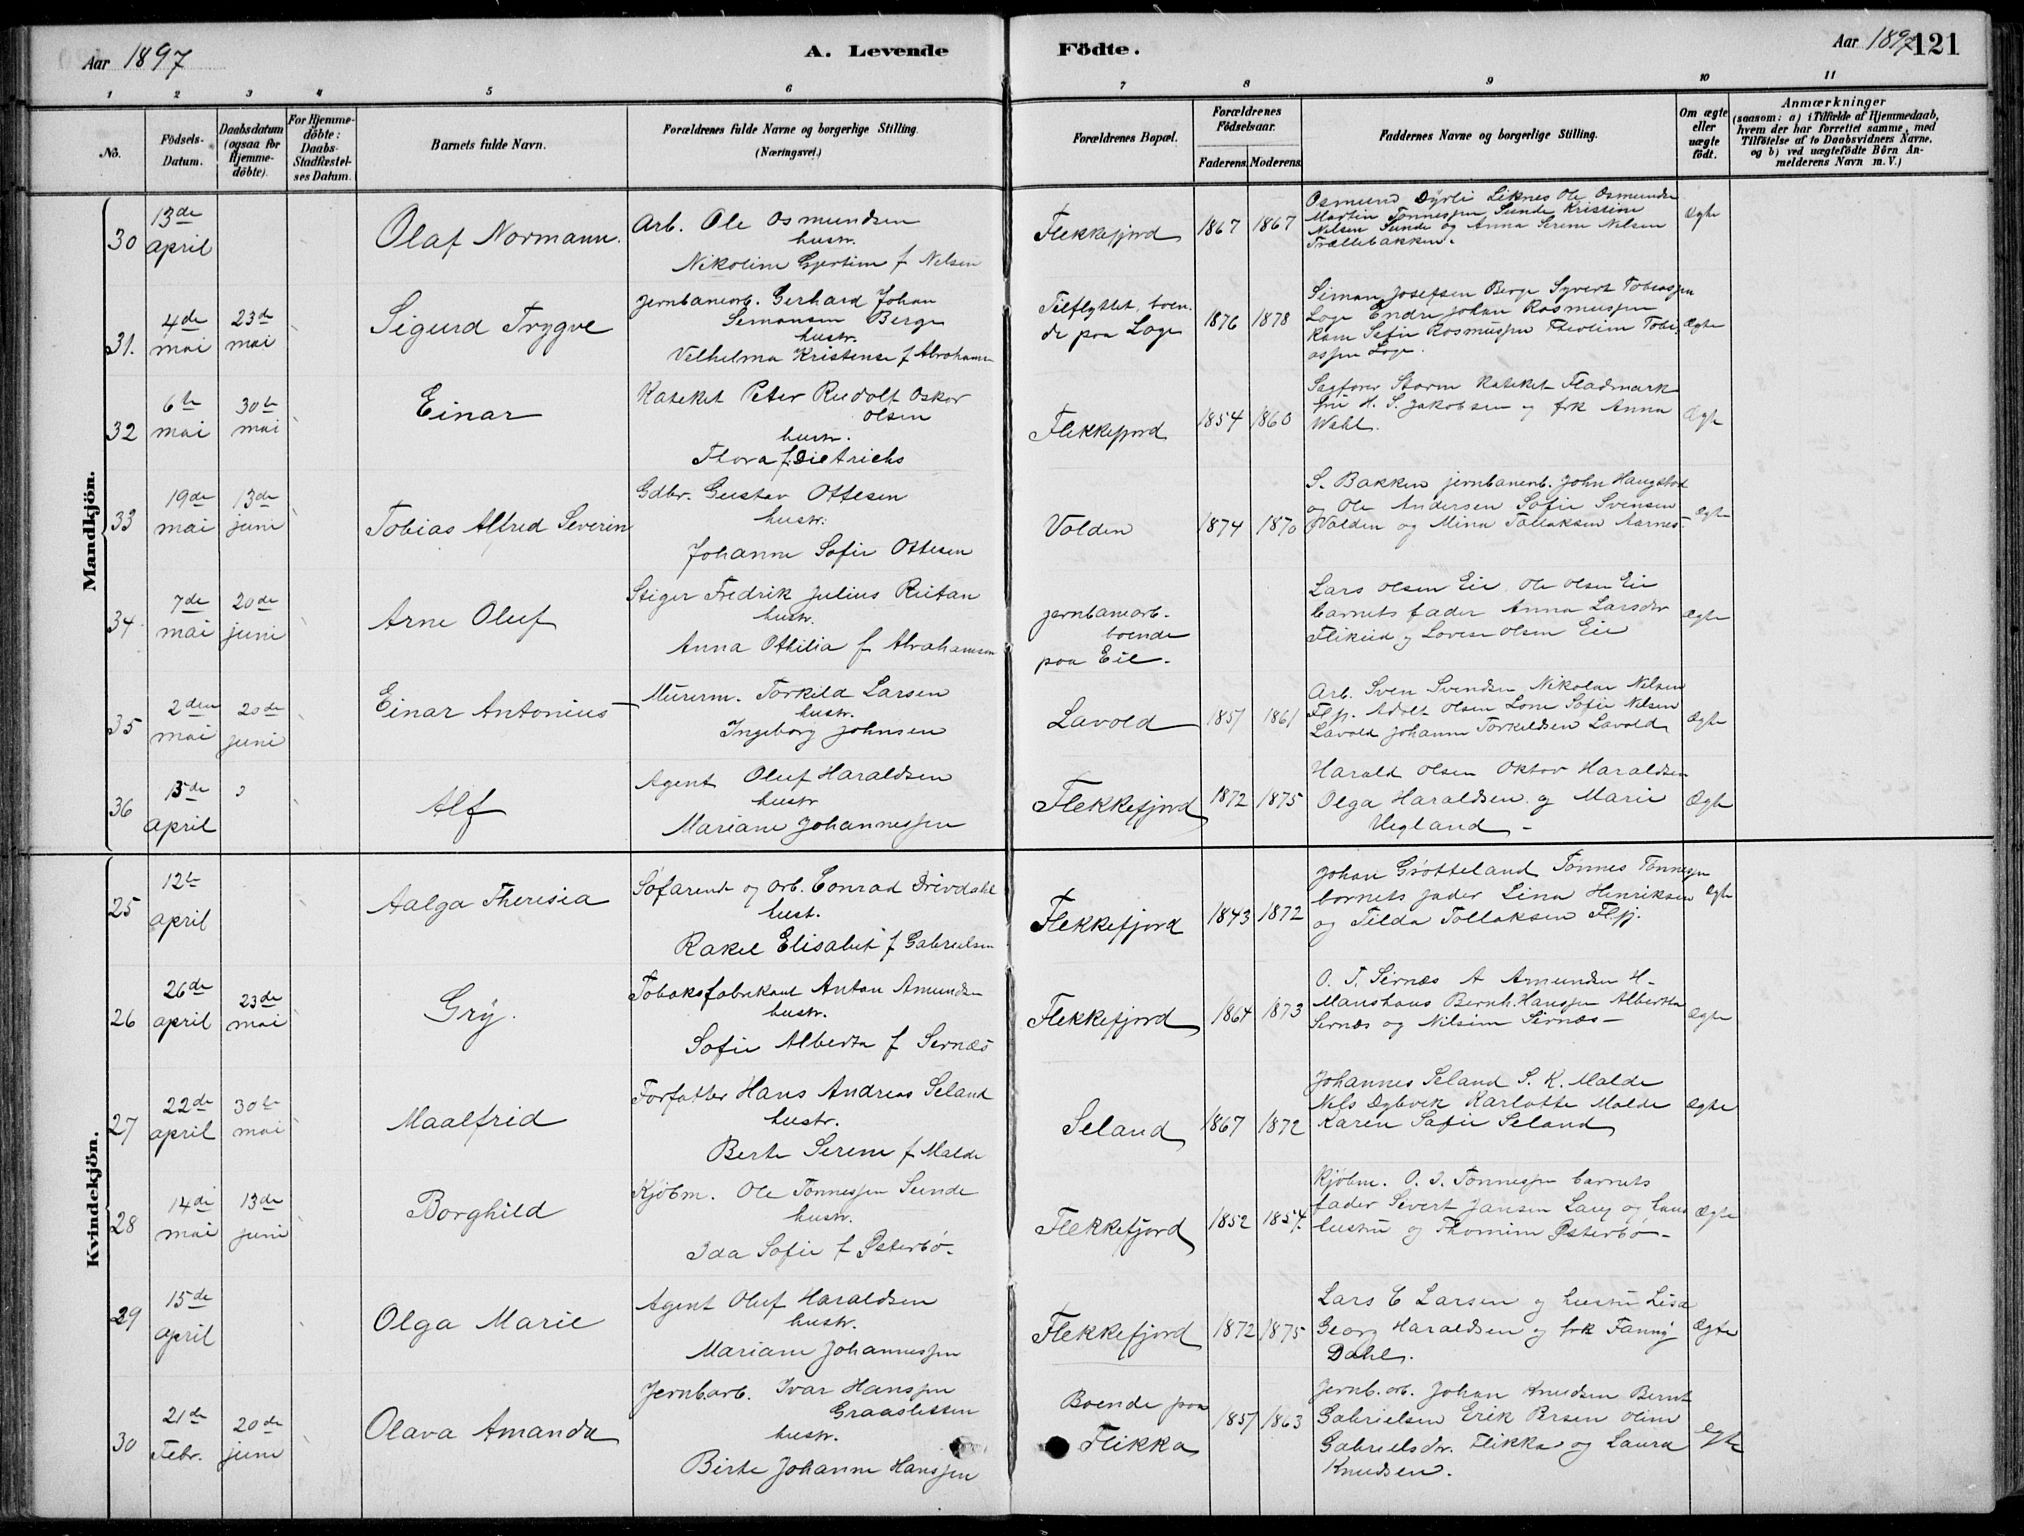 Aar 1897
A. Levende
Födte.
Aar 1897
121
1 2 3 4 5 6 7 8 9 10 11
No.
Födsels-Datum.
Daabsdatum (ogsaa for Hjemme-döbte).
For Hjemme-döbte: Daabs-Stadfæstel-ses Datum.
Barnets fulde Navn.
Forældrenes fulde Navne og borgerlige Stilling.
(Næringsvei.)
Forældrenes Bopæl.
Forældrenes Födselsaar.
Faderens. Moderens.
Faddernes Navne og borgerlige Stilling.
Om ægte eller uægte födt.
Anmærkninger
(saasom: a) i Tilfælde af Hjemmedaab, hvem der har forrettet samme, med Tilföielse af to Daabsvidners Navne, og b) ved uægtefödte Börn An-melderens Navn m. V.)
Mandkjön.
30 13de april Olaf Normann. Arb. Ole Osmundsen hustr. Nikoline Gjertine f Nelsen Flekkefjord 1867 1867 Osmund Dyrli Leknes Ole Osmundsen
Martin Tønnessen Sunde Kristine
Nilsen Sunde og Anna Serene Nelsen
Trællebakken. Ægte
31. 4de mai 23de mai Sigurd Trygve Jernbanearb. Gerhard Johan
Semonsen Berge
hustr.
Velhelma Kristense f Abrahams Tilflyttet, boen-
de paa Loge 1876 1878 Simon Josefsen Berge Syvert Tobiassen
Loge Endre Johan Rasmussen
Kam Sofie Rasmussen Theoline Tobi
assen Loge. Ægte
32 6te mai 30te mai Einar Kateket Peter Rudolf Oskar
Olsen
hustr.
Thora f. Dietrichs Flekkefjord 1854 1860 Sagfører Storm kateket Fladmark
fru H. S. Jakobsen og frk Anna
Wahl. Ægte
33 19de mai 13de juni Tobias Alfred Severin Gdbr. Gustav Ottesen
hustr.
Johanne Sofie Ottesen Volden 1874 1870 S. Bakken jernbanearb. John Haugstad
og Ole Andersen Sofie Svensen
Volden og Mina Tollaksen Aarnes- Ægte
34. 7de mai 20de juni Arne Oluf Stiger Fredrik Julius Reitan
hustr.
Anna Othilia f Abrahamsen jernbanearb.
boende
paa Eie. Lars Olsen Eie Ole Olsen Eie
barnets fader Anna Larsdr
Flikeid og Lovise Olsen Eie Ægte
35 2den mai 20de juni Einar Antonius Murerm. Torkild Larsen
hustr.
Ingeborg Johnsen Lavold 1857 1861 Arb. Sven Svendsen Nikolai Nilsen
Flfj. Adolf Olsen Lone Sofie Nilsen
Lavold Johanne Torkildsen Lavold Ægte
36 15de april Alf Agent Oluf Haraldsen
hustr
Mariane Johannessen Flekkefjord 1872 1875 Harald Olsen Oktav Haraldsen
Olga Haraldsen og Marie
Uegland - Ægte
Kvindekjön.
25 12te april Aalga Theresia Søfarende og arb. Conrad Drivdahl
hust.
Rakel Elisabet f Gabrielsen Flekkefjord 1843 1872 Johan Grøtteland Tønnes Tønnessen
barnets fader Lina Henriksen
og Tilda Tollaksen Flfj. Ægte
26 26de april 23de mai Gry. Tobaksfabrikant Anton Amundsen
hustr.
Sofie Alberta f Sernæs Flekkefjord 1864 1873 O. T. Sirnæs A Amundsen H-
Monshaus Bernh. Hanssen Alberta
Sernæs og Nilsine Sirnæs - Ægte
27 22de april 30te mai Maalfrid Forfatter Hans Andreas Seland
hustr.
Berte Serene f Malde Seland 1867 1872 Johannes Seland S. K. Malde
Nils Dybvik Karlotte Malde
Karen Sofie Seland Ægte
28 14de mai 13de juni Borghild Kjøbm. Ole Tønnessen Sunde
hustr.
Ida Sofie f Østerbø. Flekkefjord 1852 1854. Kjøbm. O. S. Tønnessen barnets
fader Severt Jansen Laug og hans
hustru og Thomine Østerbø- Ægte
29 15de april Olga Marie Agent Oluf Haraldsen
hustr.
Mariane Johannessen Flekkefjord 1872 1875 Lars C Larsen og hustru Lisa
Georg Haraldsen og frk Fanny
Dahl. Ægte
30 21de Febr. 20de juni Olava Amanda Jernb.arb. Ivar Hanssen
Graasletten
hustr.
Birte Johanne Hanssen Boende paa
Flikka 1857 1863 Jernb. arb. Johan Knudsen Bernt
Gabrielsen Erik Ersen Oline
Gabrielsdr. Flikka og Laura
Knudsen. Ægte